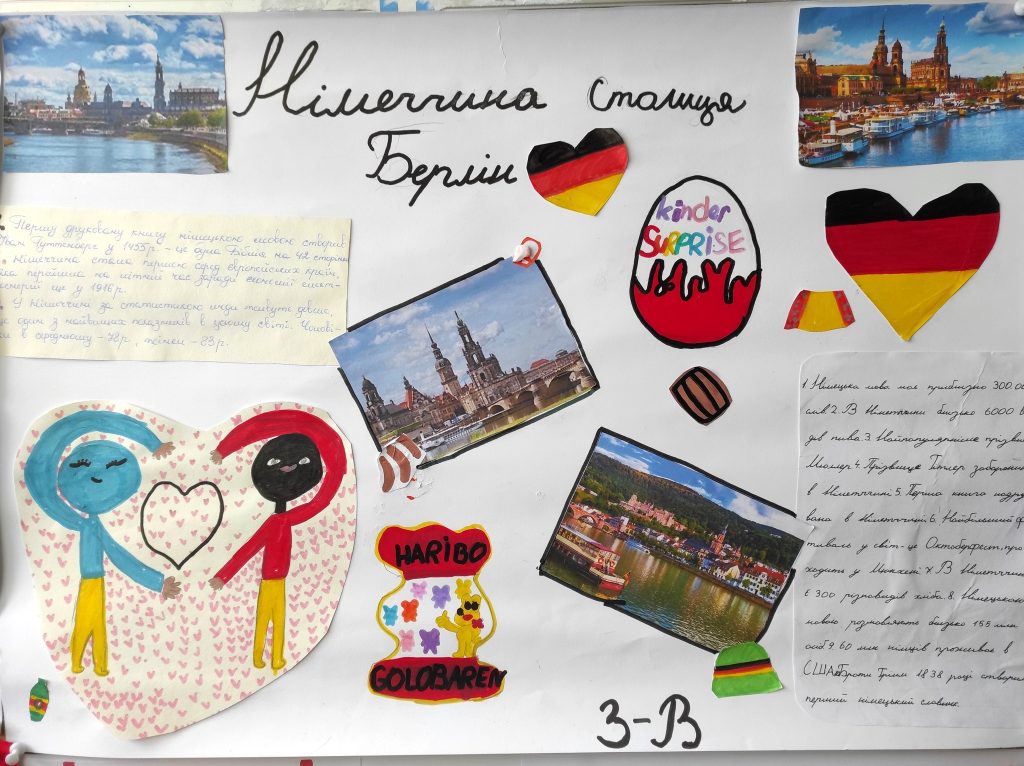 Німеччина Столиця
Берлін
kinder
SURPRISE
Першу друковану книгу німецькою мовою створив
у 1455р. – це одна Біблія на 42
Німеччина стала першою серед європейських країн,
перейшла на літній час заради економії
ще у 1916р.
У Німеччині за статистикою люди живуть довше,
це один з найвищих показників в усьому світі. Чолові-
ки в середньому – 78р, жінки – 83р.
1. Німецька мова має приблизно 300.00
слів 2. В Німеччині близько 6000
дів пива. 3. Найпопулярніше прізви
Мюллер 4. Прізвище Гітлер заборонено
в Німеччині 5. Перша книга надру
вана в Німеччині 6. Найбільший ф
тиваль у світ-це Октоберфест, про
ходить у Мюнхені В Німеччині
є 300 різновидів хліба. 8. Німецькою
мовою розмовляють близько 155 млн.
осіб 9. 60 млн німців проживає в
США Брати Грімм 1838 році створил
перший німецький словник.
HARIBO
GOLDBAREN
3-В